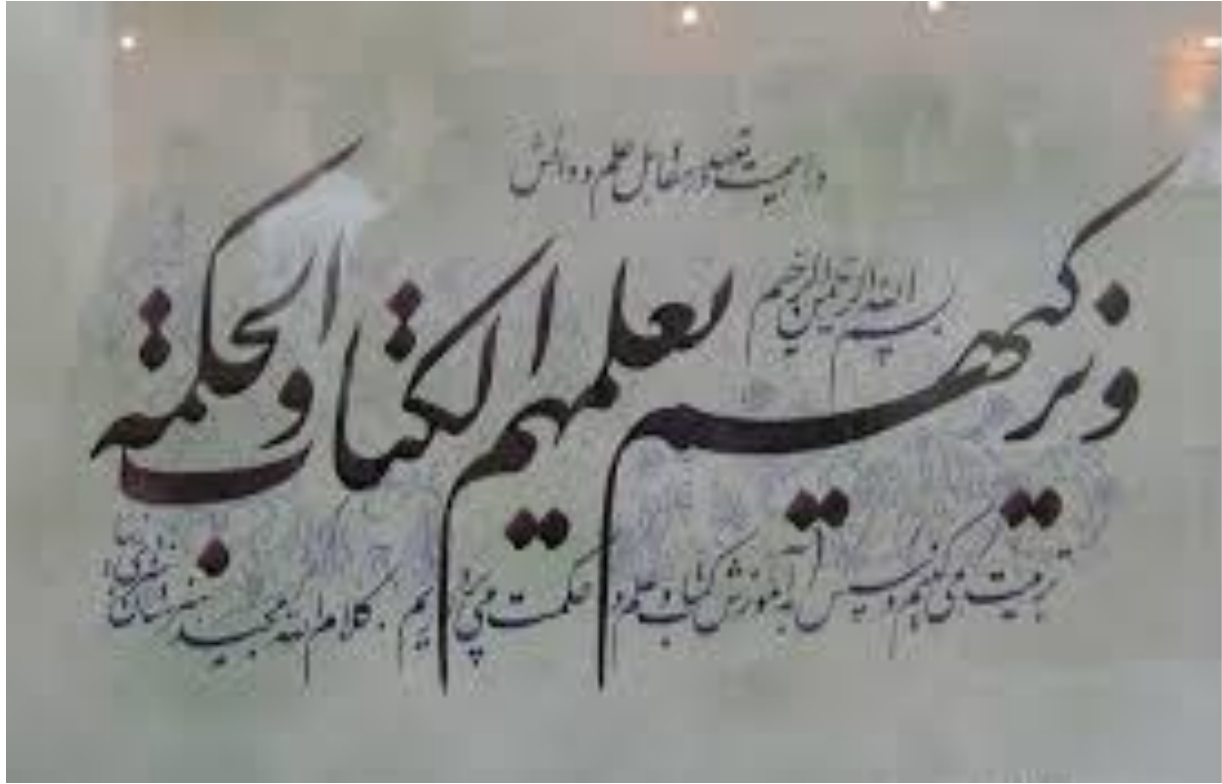 در اهمیت تعهد در مقابل علم و دانش
بسم الله الرحمن الرحیم
و یزکیهم یعلمهم الکتاب و الحکمة
تربیت می کنیم و سپس به آموزش کتاب و علم و حکمت می پردازیم . کلام الله مجید